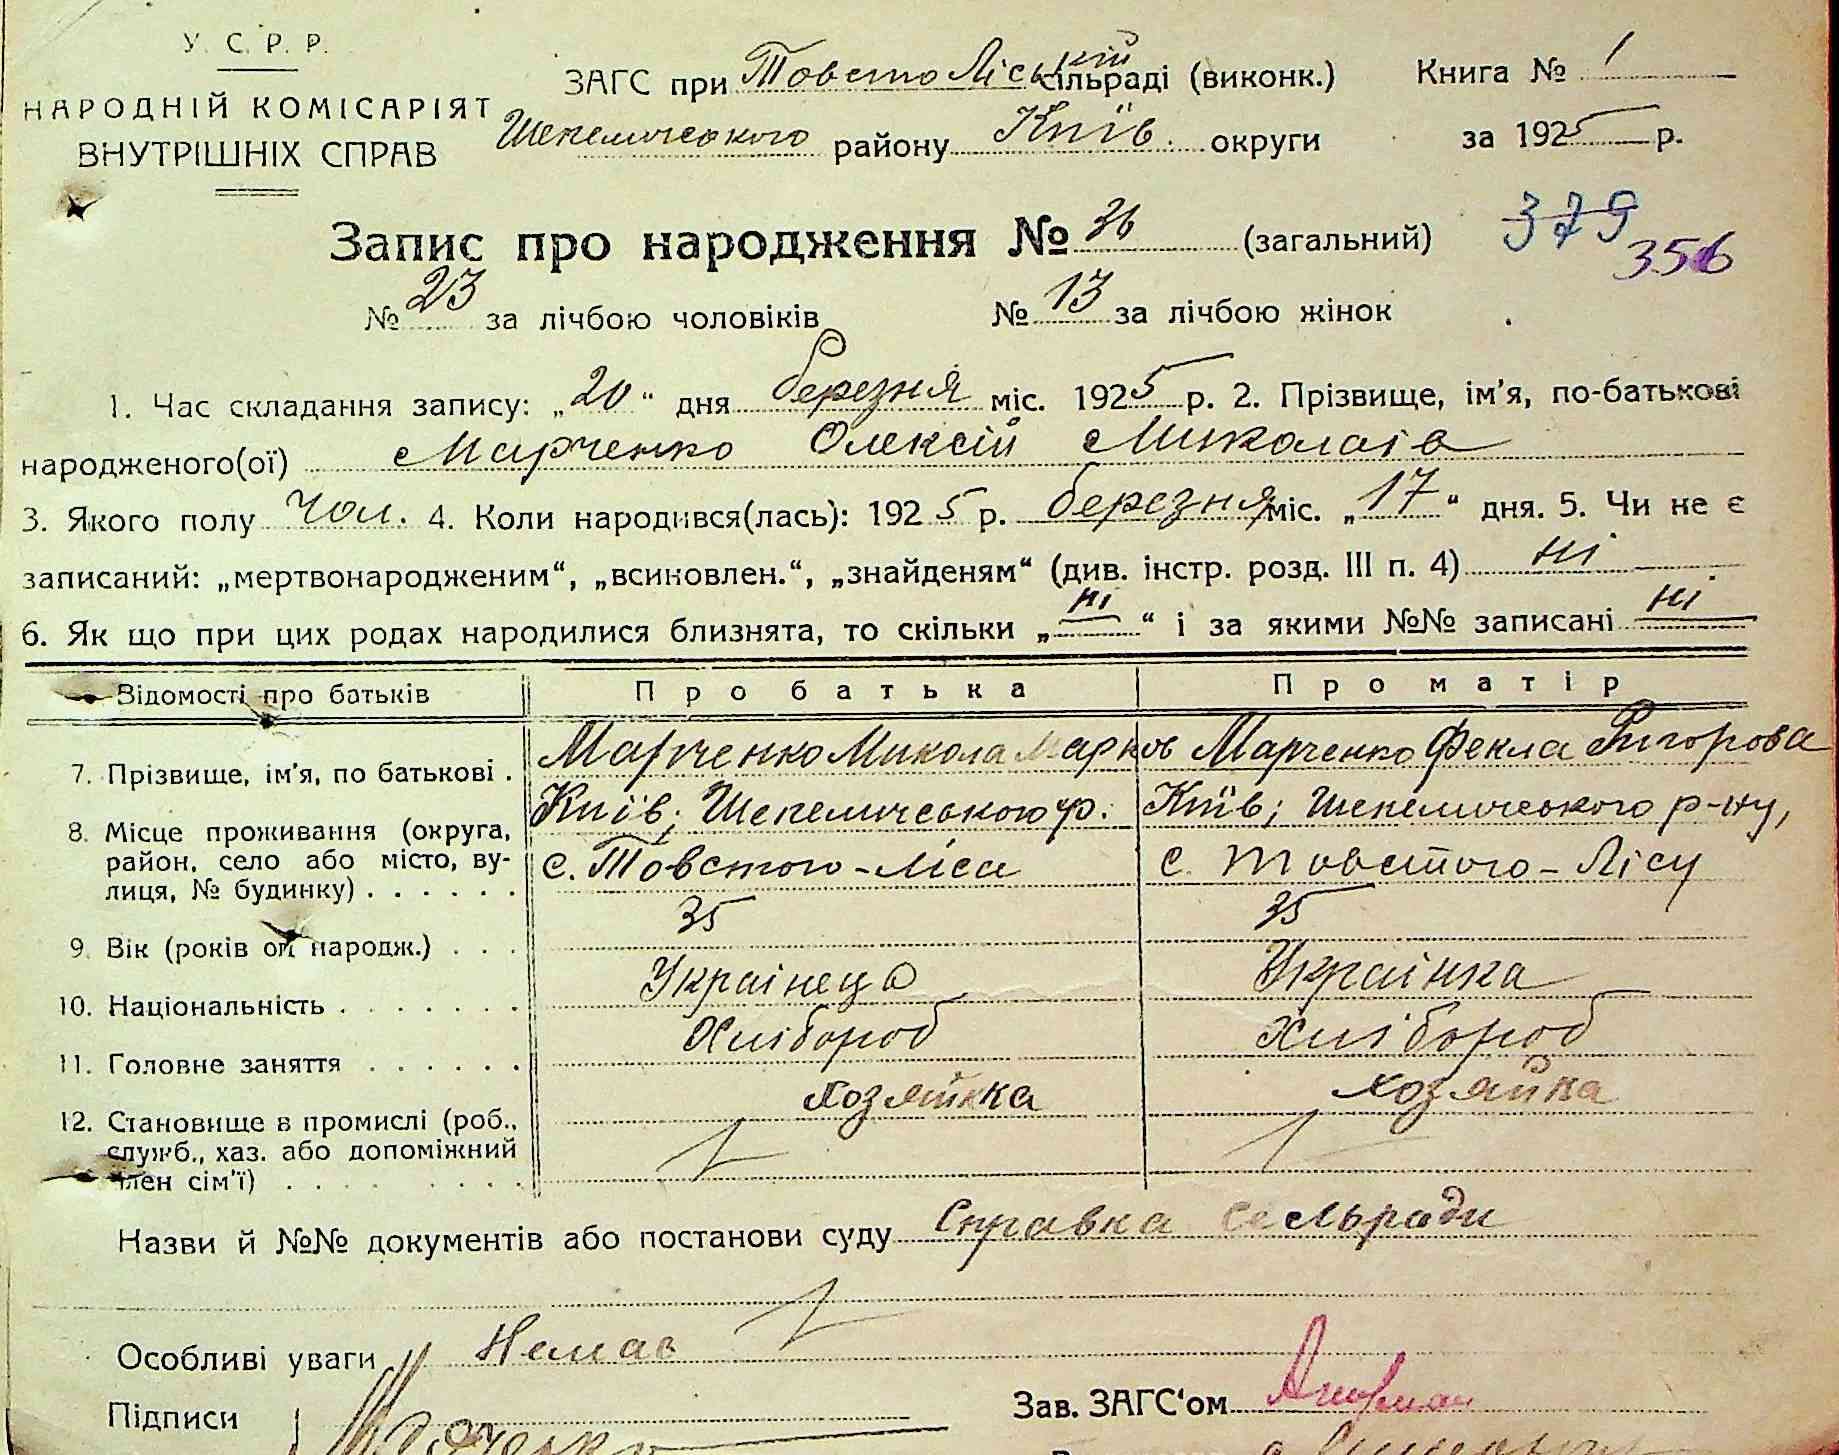 У. С. Р. Р.
НАРОДНІЙ КОМІСАРІЯТ
ВНУТРІШНІХ СПРАВ
ЗАГС при Товсто Ліській сільраді (виконк.) Книга № 1
Шепелического району Київ. округи за 1925 р.
Запис про народження № 36 (загальний) 379
356
№ 23 за лічбою чоловіків № 13 за лічбою жінок
1. Час складання запису: „20“ дня березня міс. 1925 р. 2. Прізвище, ім'я, по-батькові
народженого(ої) Марченко Олексій Миколаїв
3. Якого полу чол. 4. Коли народився(лась): 1925 р. березня міс. „17“ дня. 5. Чи не є
записаний: „мертвонародженим“, „всиновлен.“, „знайденям“ (див. інстр. розд. III п. 4) ні
6. Як що при цих родах народилися близнята, то скільки „ні“ і за якими №№ записані ні
Відомості про батьків Про батька Про матір
7. Прізвище, ім'я, по батькові . Марченко Микола Марков Марченко Фекла Григорова
8. Місце проживання (округа, район, село або місто, вулиця, № будинку) . . . . . . Київ; Шепелическою р. Київ; Шепелического р-ну,
с. Товстого-Ліса с. Товстого-Лісу
9. Вік (років од народж.) . . . 35 35
10. Національність . . . . . . . Українець Українка
11. Головне заняття . . . . . . Хлібороб Хлібороб
12. Становище в промислі (роб., служб., хаз. або допоміжний член сім'ї) . . . . . . . . хозяйка хозяйка
Назви й №№ документів або постанови суду Справка сельради
Особливі уваги Немає
Підписи Марченко Зав. ЗАГС'ом